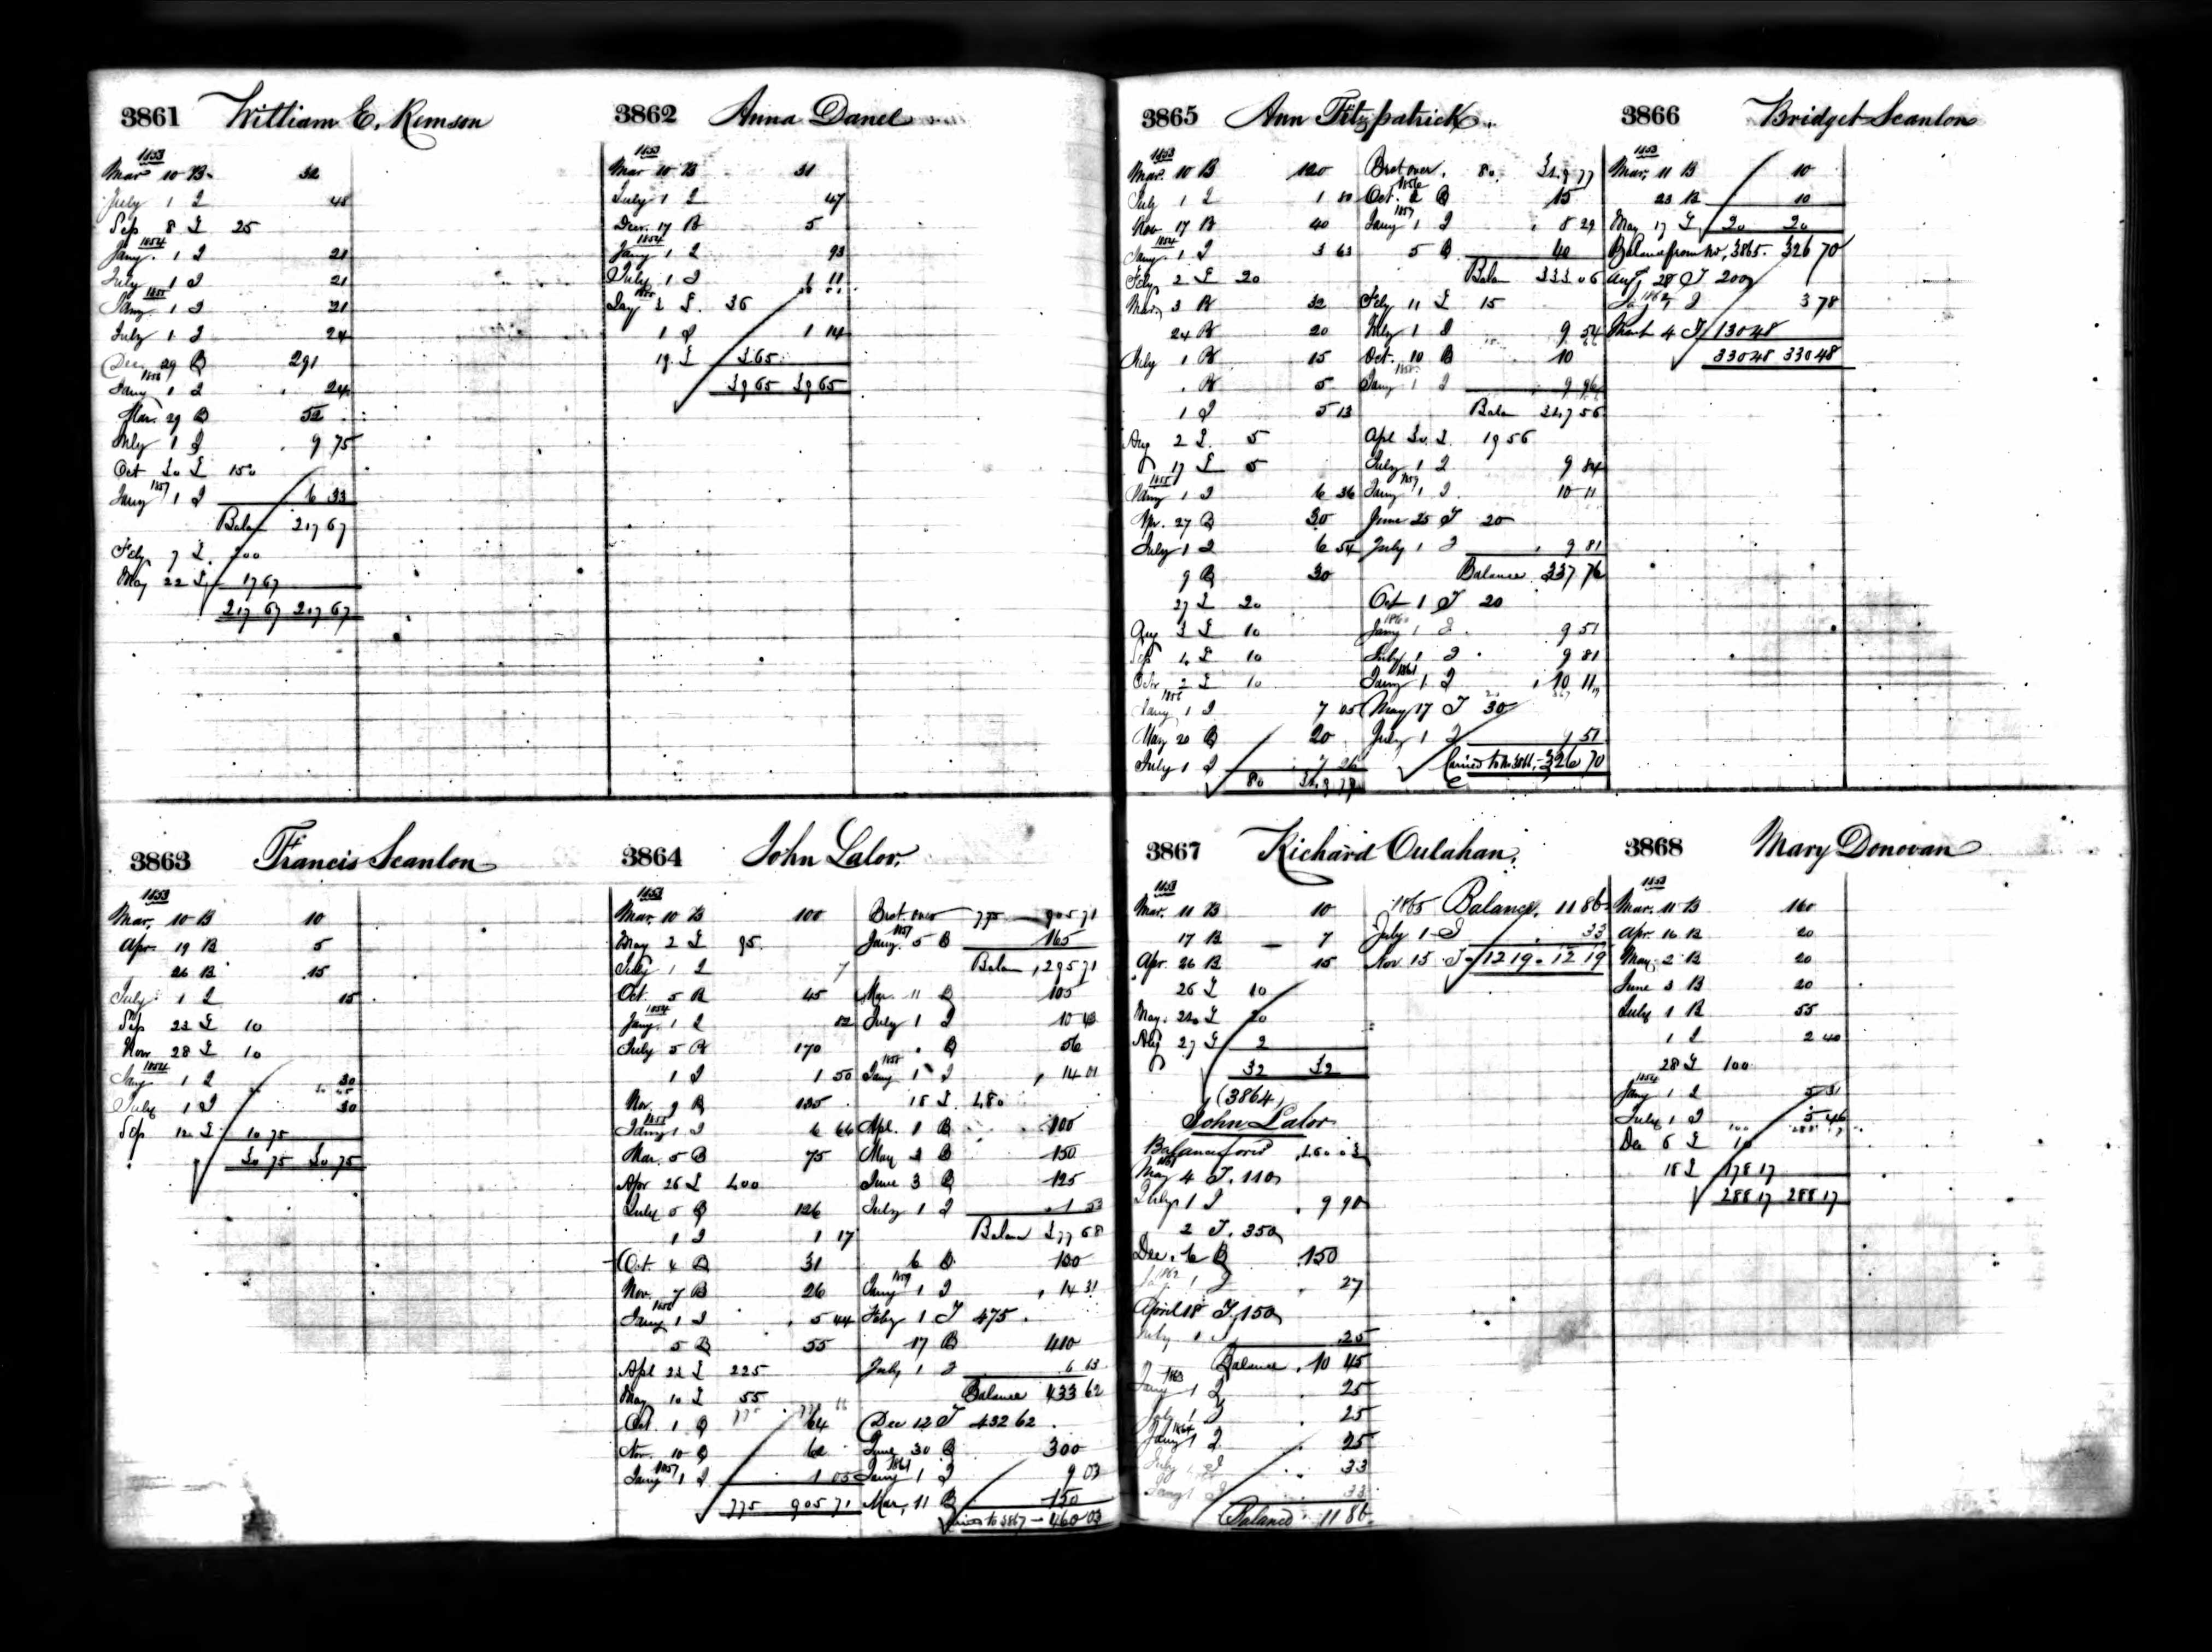 3861 William E. Remson
1853
Mar 10 B. 32
July 1 I 48
Sep 8 L 25
1854
Jany. 1 I 21
July 1 I 21
1855
Jany 1 I 21
July 1 I 24
Dec 29 B 291
1856
Jany 1 I 24
Mar. 29 B 52
July 1 I 9 75
Oct 30 L 150
1857
Jany 1 I 6 33
Balan 217 67
Feby 7 L. 200
May 22 L 17 67
217 67 217 67
3862 Anna Danel
1853
Mar 10 B 31
July 1 I 47
Dec. 17 B 5
1854
Jany 1 I 93
July 1 I 1 11
1855
Jany 2 L. 36
1 I 1 14
19 L 3 65
39 65 39 65
3863 Francis Scanlon
1853
Mar. 10 B 10
Apr. 19 B 5
26 B 15
July 1 I 15
Sep 22 L 10
Nov 28 L 10
1854
Jany 1 I 30
July 1 I 30
Sep 12 L 10 75
30 75 30 75
3864 John Lalor.
1853
Mar. 10 B 100
May 2 L 95
July 1 I 7
Oct. 5 B 45
1854
Jany. 1 I 82
July 5 B 170
1 I 1 50
Nov. 9 B 135
1855
Jany 1 I 6 66
Mar. 5 B 75
Apr 26 L 400
July 5 B 126
1 I 1 17
Oct. 4 B 31
Nov. 7 B 26
1856
Jany 1 I 5 44
5 B 55
Apl 22 L 225
May 10 L 55
Oct. 1 B 64
Nov. 10 B 62
1857
Jany 1 I 1 05
775 905 71
Brot. over 775 905 71
1857
Jany. 5 B 165
Balan 295 71
Mar. 11 B 105
July 1 I 10 43
B 56
1858
Jany 1 I 14 01
18 L 480
Apl. 1 B 100
May 3 B 150
June 3 B 125
July 1 I 1 53
Balan 377 68
6 B 100
1859
Jany 1 I 14 31
Feby 1 T 475
17 B 410
July 1 I 6 63
Balance 433 62
Dec 12 T 432 62
June 30 B 300
1861
Jany 1 I 9 03
Mar. 11 B 150
to 3867 - 460 03
3865 Ann Fitzpatrick.
1853
Mar. 10 B 120
July 1 I 1 80
Nov 17 B 40
1854
Jany. 1 I 3 63
Feby 2 L 20
Mar. 3 B 32
24 B 20
July 1 B 15
B 5
1 I 5 13
Aug 2 L. 5
17 L 5
1855
Jany 1 I 6 36
Apr. 27 B 30
July 1 I 6 54
9 B 30
27 L 20
Aug 3 L 10
Sep 4 L 10
Octr 2 L 10
1856
Jany 1 I 7 05
May 20 B 20
July 1 I 7 26
80 349 77
Brot over. 80. 349 77
1856
Oct. 2 B 15
1857
Jany 1 I 8 29
5 B 40
Balan 333 06
Feby 11 L 15
July 1 I 9 54
Oct. 10 B 10
1858
Jany 1 I 9 96
Balan 347 56
Apl 30 L. 19 56
July 1 I 9 84
1859
Jany 1 I. 10 11
June 25 T 20
July 1 I 9 81
Balance 337 76
Oct 1 T 20
1860
Jany 1 I. 9 51
July 1 I 9 81
1861
Jany 1 I 10 11
May 17 T 30
July 1 I 9 51
Carried to No 3866. - 326 70
3866 Bridget Scanlon
1853
Mar. 11 B 10
23 B 10
May 17 L 20 20
Balance from No. 3865. 326 70
Augt 28 T 200
1862
I 3 78
March 4 T 130 48
330 48 330 48
3867 Richard Oulahan.
1853
Mar. 11 B 10
17 B 7
Apr. 26 B 15
26 L 10
May. 24 L 20
Aug 27 L 2
32 32
(3864)
John Lalor
Balance forwd 460 03
1861
May 4 T. 110
July 1 I 9 90
2 T. 350
Dec. 6 B 150
1862
I 27
April 18 T. 150
July 1 I 25
Balance 10 45
1863
Jany 1 I 25
July 1 I 25
1864
Jany 1 I 25
July 1 I 33
Jany 1 I 33
Balance 11 86
1865 Balance. 11 86
July 1 I 33
Nov 15 T 12 19 12 19
3868 Mary Donovan
1853
Mar. 11 B 160
Apr. 16 B 20
May. 2 B 20
June 3 B 20
July 1 B 55
1 I 2 40
28 L 100
1854
Jany 1 I 5 31
July 1 I 5 46
Dec 6 L 10
18 L 178 17
288 17 288 17